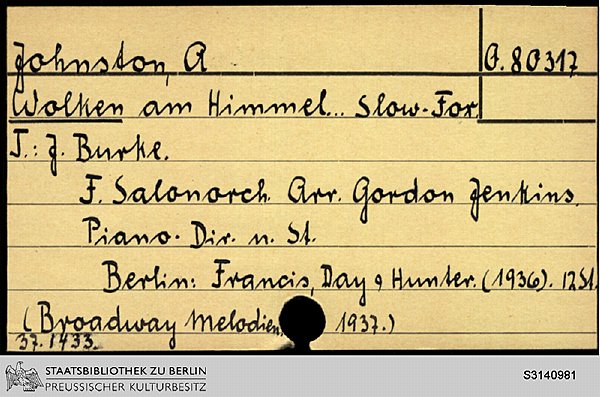 Johnston, A
O. 80317
Wolken am Himmel... Slow-Fox
T.: J. Burke.
F. Salonorch. Arr. Gordon Jenkins.
Piano-Dir. u. St.
Berlin: Francis, Day & Hunter. (1936). 12 St.
(Broadway Melodien. 1937.)
37.1433.
STAATSBIBLIOTHEK ZU BERLIN
PREUSSISCHER KULTURBESITZ
S3140981